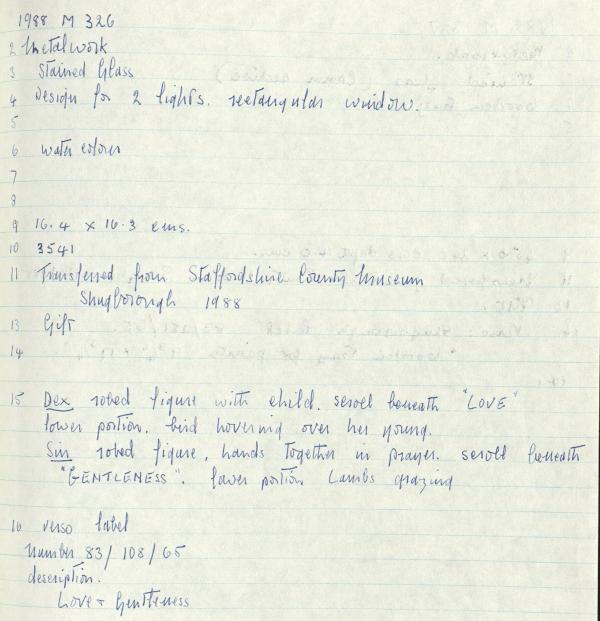 1988 M 326
2 Metalwork
3 Stained Glass
4 Design for 2 lights. rectangular window.
5
6 water colour
7
8
9 16.4 x 16.3 cms.
10 3541
11 Transferred from Staffordshire County Museum
Shugborough 1988
13 Gift
14
15 Dex robed figure with child. scroll beneath "LOVE"
lower portion. bird hovering over her young.
Sin robed figure, hands together in prayer. scroll beneath
"GENTLENESS". lower portion Lambs grazing
16 verso label
number 83/108/65
description.
Love + Gentleness